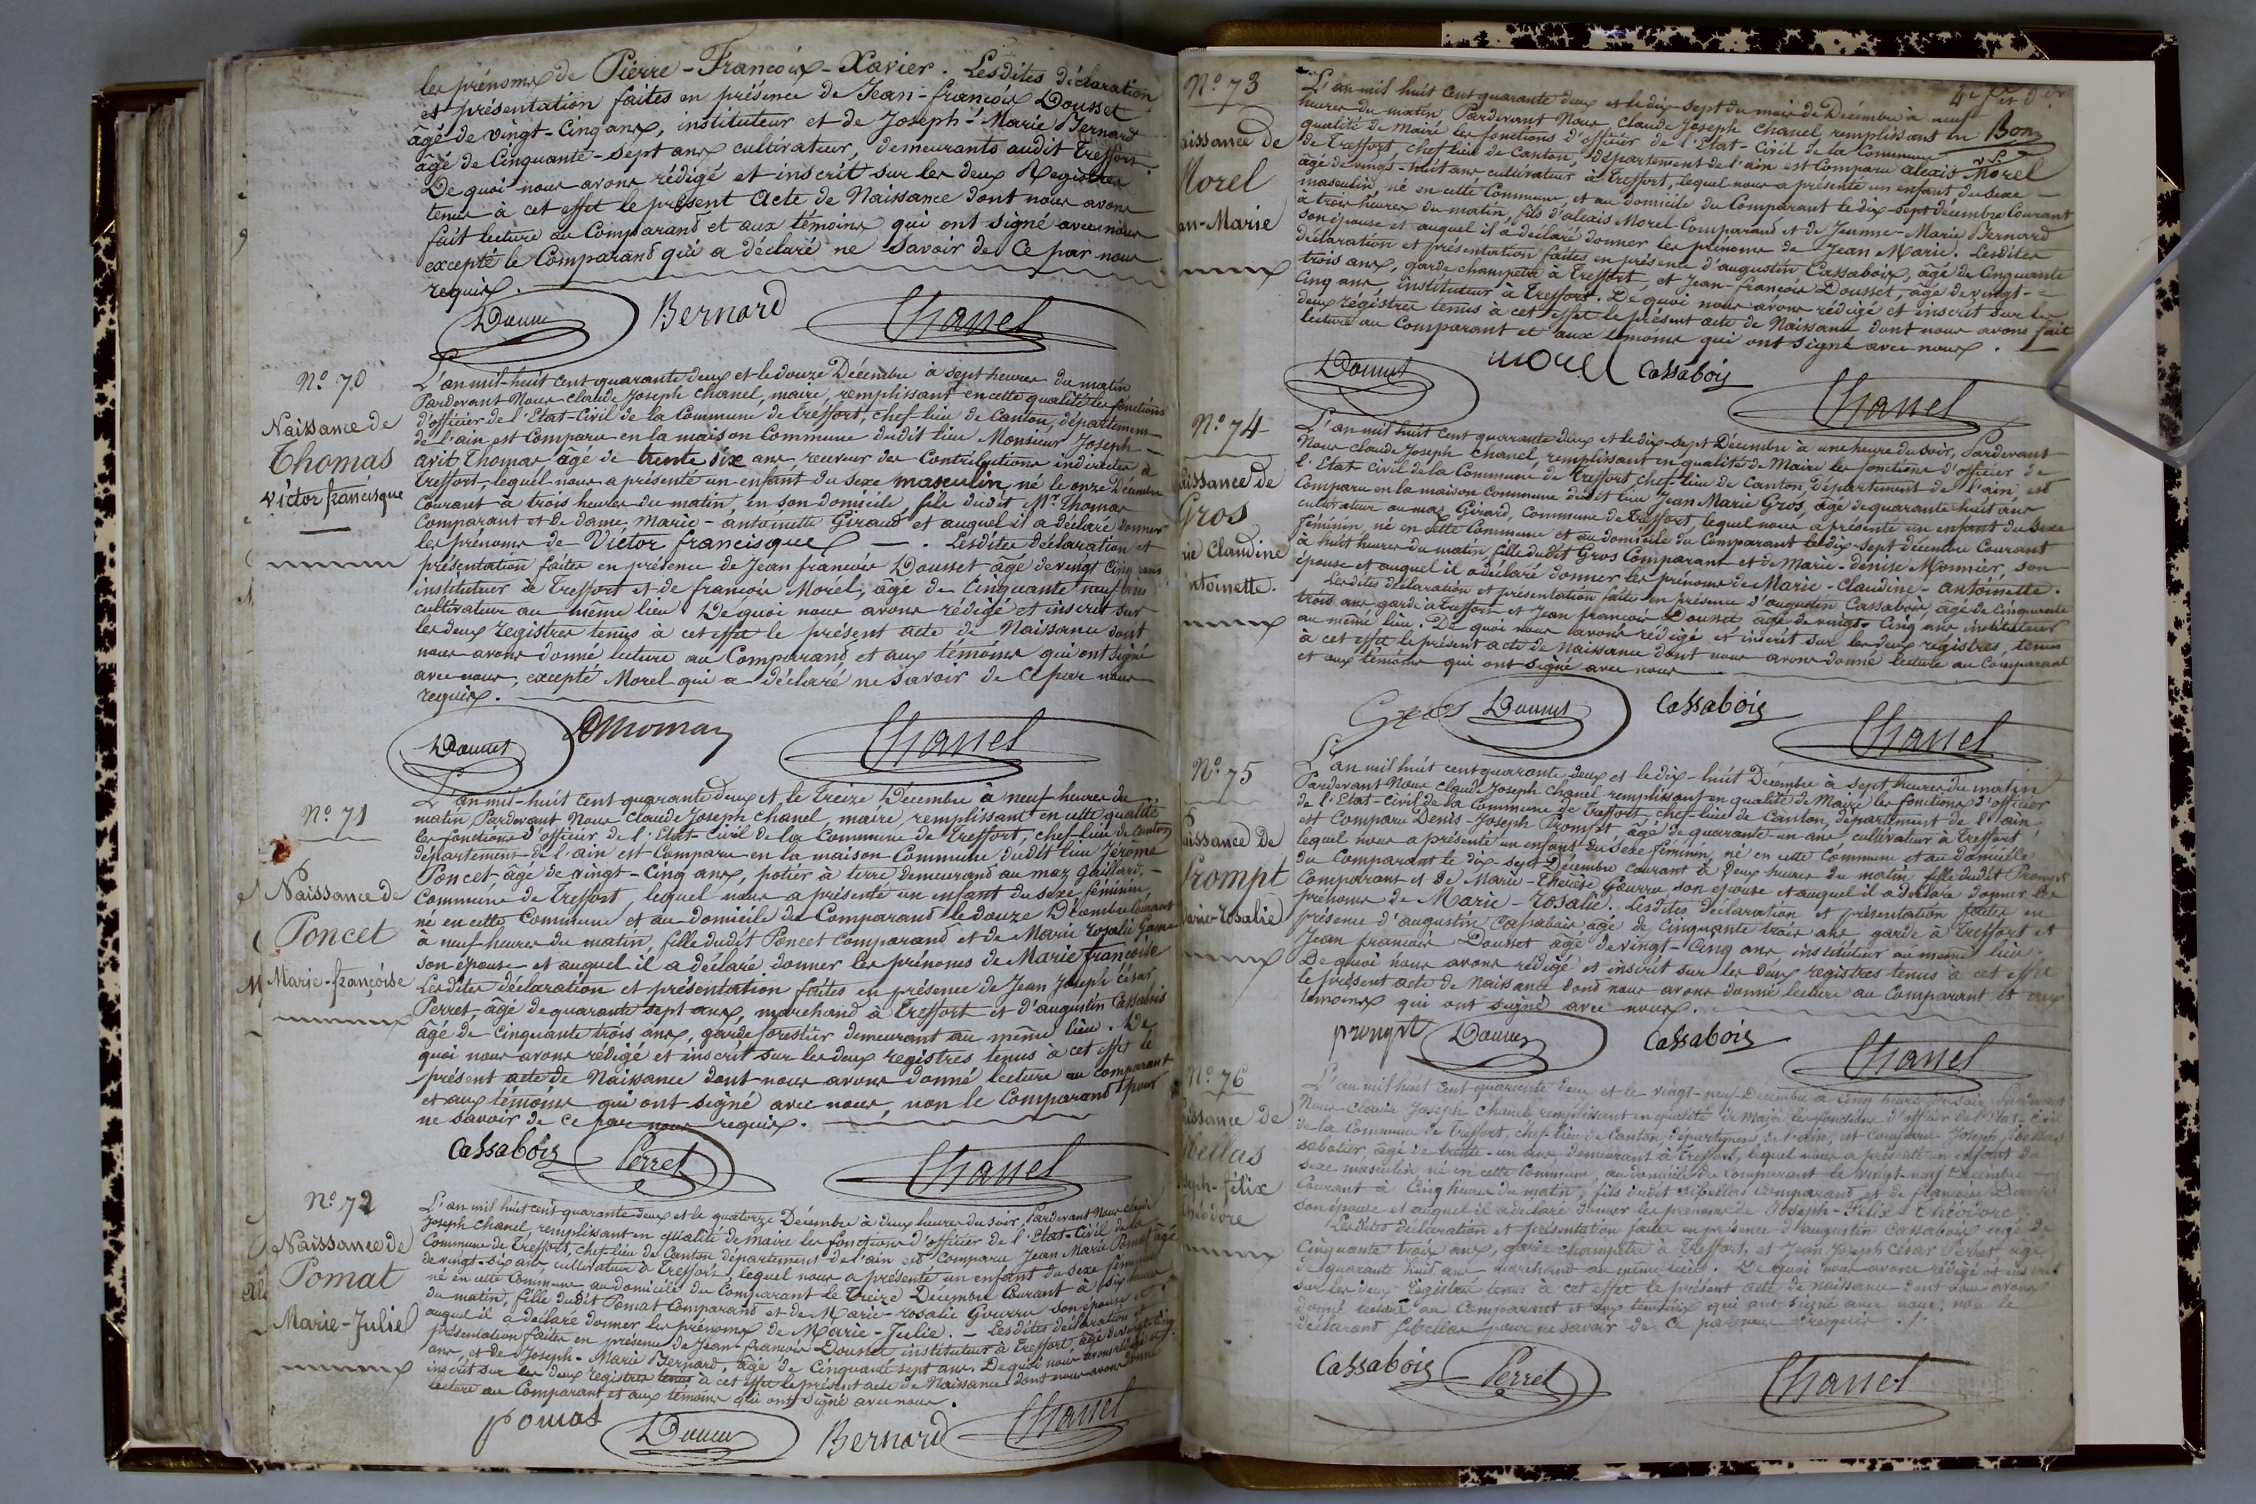 les prénoms de Pierre-François-Xavier. Lesdites déclaration
et présentation faites en présence de Jean-françois Dousset
âgé de vingt-Cinq ans, instituteur et de Joseph-Marie Bernard
âgé de Cinquante-Sept ans cultivateur, demeurants audit Treffort.
De quoi nous avons rédigé et inscrit sur les deux Registres
tenus à cet effet le présent Acte de Naissance dont nous avons
fait lecture au Comparand et aux témoins qui ont signé avec nous
excepté le Comparand qui a déclaré ne Savoir de Ce par nous
requis.
Bernard Chanel
N° 70
Naissance de
Thomas
victor francisque
L'an mil-huit cent quarante deux et le douze Décembre à sept heures du matin
Pardevant Nous claude Joseph chanel, maire, remplissant en cette qualité les fonctions
d'officier de l'Etat-Civil de la Commune de treffort, chef lieu de Canton, département
de l'ain est Comparu en la maison Commune dudit lieu Monsieur Joseph
avit Thomas âgé de trente six ans receveur des Contributions indirectes à
treffort, lequel nous a présenté un enfant du sexe masculin, né le onze Décembre
Courant à trois heures du matin, en son domicile, fils dudit Mr Thomas
Comparant et de dame Marie-antoinette Giraud et auquel il a déclaré donner
les prénoms de Victor francisque — . Lesdites déclaration et
présentation faites en présence de Jean françois Dousset âgé de vingt Cinq ans
instituteur à Treffort et de françois Morel, âgé de Cinquante neuf ans
cultivateur au même lieu. De quoi nous avons rédigé et inscrit sur
les deux registres tenus à cet effet le présent acte de Naissance dont
nous avons donné lecture au Comparand et aux témoins qui ont signé
avec nous, excepté Morel qui a déclaré ne Savoir de Ce par nous
requis.
Chanel
N° 71
Naissance de
Poncet
Marie-françoise
L'an mil-huit Cent quarante deux et le Treize Décembre à neuf heures du
matin Pardevant Nous Claude Joseph Chanel, maire remplissant en cette qualité
les fonctions d'officier de l'Etat Civil de la Commune de Treffort, chef-lieu de Canton
département de l'ain est Comparu en la maison Commune dudit lieu Jérôme
Poncet âgé de vingt-Cinq ans, potier à terre demeurand au maz Gaillard,
Commune de Treffort, lequel nous a présenté un enfant du sexe féminin,
né en cette Commune et au domicile du Comparand le douze Décembre Courant
à neuf heures du matin, fille dudit Poncet Comparand et de Marie Rosalie
son épouse et auquel il a déclaré donner les prénoms de Marie françoise
Lesdites déclaration et présentation faites en présence de Jean Joseph César
Perret, âgé de quarante sept ans, marchand à Treffort et d'augustin Cassabois
âgé de Cinquante trois ans, garde forestier demeurant au même lieu. De
quoi nous avons rédigé et inscrit sur les deux registres tenus à cet effet le
présent acte de Naissance dont nous avons donné lecture au comparant
et aux témoins qui ont signé avec nous, non le Comparand pour
ne savoir de ce par nous requis.
Cassabois Perret Chanel
N° 72
Naissance de
Pomat
Marie-Julie
L'an mil huit cent quarante deux et le quatorze Décembre à deux heures du soir, Pardevant Nous claude
Joseph Chanel remplissant en qualité de maire les fonctions d'officier de l'Etat-Civil de la
Commune de Treffort, chef lieu de Canton département de l'ain est Comparu Jean Marie Pomat âgé
de vingt-six ans, cultivateur à Treffort, lequel nous a présenté un enfant du sexe féminin
né en cette Commune au domicile du Comparant le Treize Décembre Courant à six heures
du matin, fille dudit Pomat Comparand et de Marie-rosalie Gourru son épouse et
auquel il a déclaré donner les prénoms de Marie-Julie. — Lesdites déclaration et
présentation faites en présence de Jean-françois Dousset instituteur à Treffort, âgé de vingt Cinq
ans, et de Joseph-Marie Bernard, âgé de Cinquante sept ans. De quoi nous avons rédigé et
inscrit sur les deux registres tenus à cet effet le présent acte de Naissance dont nous avons donné
lecture au Comparant et aux témoins qui ont signé avec nous.
pomat Bernard Chanel
N° 73
aissance de
Morel
an-Marie
L'an mil huit Cent quarante deux et le dix-sept du mois de Décembre à neuf
heures du matin, Pardevant Nous, Claude Joseph Chanel remplissant en
qualité de Maire les fonctions d'officier de l'Etat-Civil de la Commune
de Treffort, chef lieu de Canton, Département de l'ain est Comparu alexis Morel
âgé de vingt-huit ans cultivateur à Treffort, lequel nous a présenté un enfant du Sexe
masculin, né en cette Commune, et au domicile du Comparant le dix-sept décembre Courant
à trois heures du matin, fils d'alexis Morel Comparand et de Jeanne-Marie Bernard
son épouse et auquel il a déclaré donner les prénoms de Jean Marie. Lesdites
déclaration et présentation faites en présence d'augustin Cassabois, âgé de Cinquante
trois ans, garde champêtre à Treffort, et Jean-françois Dousset, âgé de vingt-
Cinq ans, instituteur à Treffort. De quoi nous avons rédigé et inscrit sur les
deux régistres tenus à cet effet le présent acte de Naissance dont nous avons fait
lecture au Comparant et aux témoins qui ont signé avec nous.
morel Cassabois Chanel
N° 74
aissance de
Gros
rie Claudine
ntoinette.
L'an mil huit Cent quarante deux et le dix-sept Décembre à une heure du soir, Pardevant
Nous claude Joseph Chanel remplissant en qualité de Maire les fonctions d'officier de
l'Etat civil de la Commune de Treffort chef lieu de Canton, Département de l'ain, est
Comparu en la maison Commune dudit lieu Jean Marie Gros, âgé de quarante huit ans
cultivateur au maz Girard, Commune de Treffort, lequel nous a présenté un enfant du Sexe
féminin, né en cette Commune et au domicile du Comparant le dix-sept décembre Courant
à huit heures du matin fille dudit Gros Comparant et de Marie-denise Monnier, son
épouse et auquel il a déclaré donner les prénoms de Marie-Claudine-antoinette.
Lesdites déclaration et présentation faites en présence d'augustin Cassabois, âgé de Cinquante
trois ans garde à Treffort et Jean françois Dousset âgé de vingt-Cinq ans instituteur
au même lieu. De quoi nous avons rédigé et inscrit sur les deux registres, tenus
à cet effet le présent acte de Naissance dont nous avons donné lecture au Comparant
et aux témoins qui ont signé avec nous
Gros Cassabois Chanel
N° 75
aissance de
Prompt
arie-rosalie
L'an mil huit cent quarante deux et le dix-huit Décembre à sept heures du matin
Pardevant Nous Claude Joseph Chanel remplissant en qualité de Maire les fonctions d'officier
de l'Etat-Civil de la Commune de Treffort, chef-lieu de Canton, département de l'ain
est Comparu Denis-Joseph Prompt, âgé de quarante-un ans cultivateur à Treffort
lequel nous a présenté un enfant du Sexe féminin, né en cette Commune et au domicile
du Comparant le dix sept Décembre courant à deux heures du matin fille dudit Prompt
Comparant et de Marie-Therèse Gourru son épouse et auquel il a déclaré donner les
prénoms de Marie-rosalie. Lesdites déclaration et présentation faites en
présence d'augustin Cassabois âgé de Cinquante trois ans garde à Treffort et
Jean françois Dousset âgé de vingt-Cinq ans, instituteur au même lieu.
De quoi nous avons rédigé et inscrit sur les deux registres tenus à cet effet
le présent acte de Naissance dont nous avons donné lecture au Comparant et aux
témoins qui ont signé avec nous.
prompt Cassabois Chanel
N° 76
aissance de
ibellas
seph-félix
théodore
L'an mil huit cent quarante deux et le vingt-neuf Décembre à Cinq heures du soir, Pardevant
Nous Claude Joseph Chanel remplissant en qualité de Maire les fonctions d'officier de l'Etat-Civil
de la Commune de Treffort, chef-lieu de Canton, département de l'ain, est Comparu Joseph
sabotier, âgé de trente-un ans demeurant à Treffort, lequel nous a présenté un enfant du
sexe masculin né en cette Commune, au domicile du comparant le vingt-neuf Décembre
Courant à Cinq heures du matin, fils dudit Comparand et de
son épouse et auquel il a déclaré donner les prénoms de Joseph-félix-théodore.
Lesdites déclaration et présentation faites en présence d'augustin Cassabois âgé de
Cinquante trois ans, garde champêtre à Treffort, et Jean Joseph César Perret, âgé
de quarante huit ans marchand au même lieu. De quoi nous avons rédigé et inscrit
sur les deux régistres tenus à cet effet le présent acte de naissance dont nous avons
donné lecture au Comparant et aux témoins qui ont signé avec nous, non le
déclarant pour ne savoir de Ce par nous requis.
Cassabois Perret Chanel